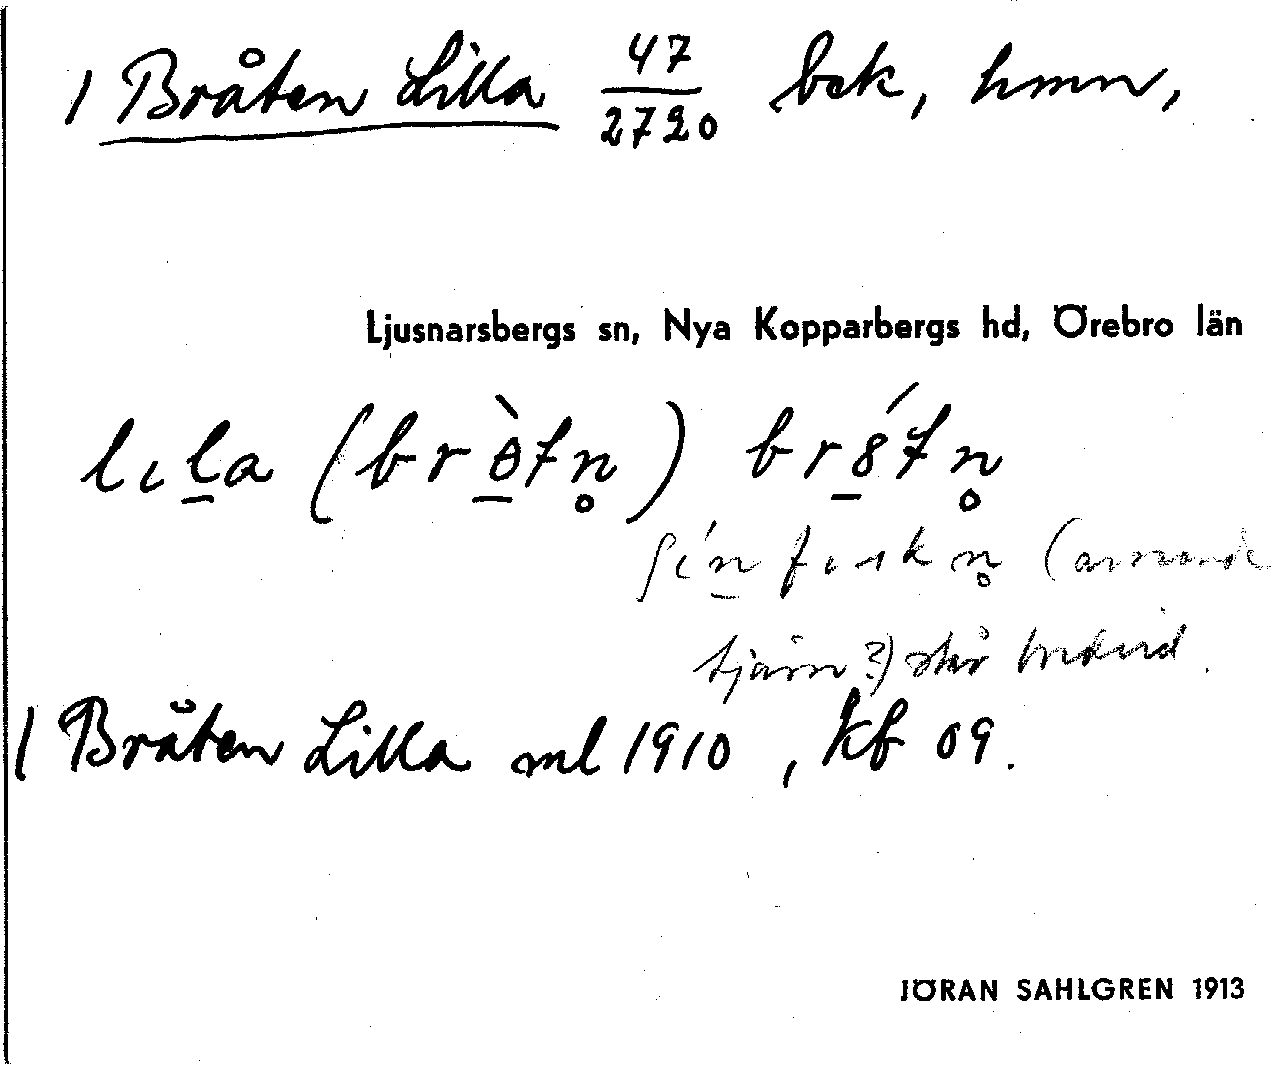 1 Bråten Lilla 47/2720 bek, hmn,
Ljusnarsbergs sn, Nya Kopparbergs hd, Örebro län
lıl̠a (brò̠tn̥) bŕ8̠tn̥
tjärn?) står bredvid.
1 Bråten Lilla ml 1910, kb 09.
JÖRAN SAHLGREN 1913